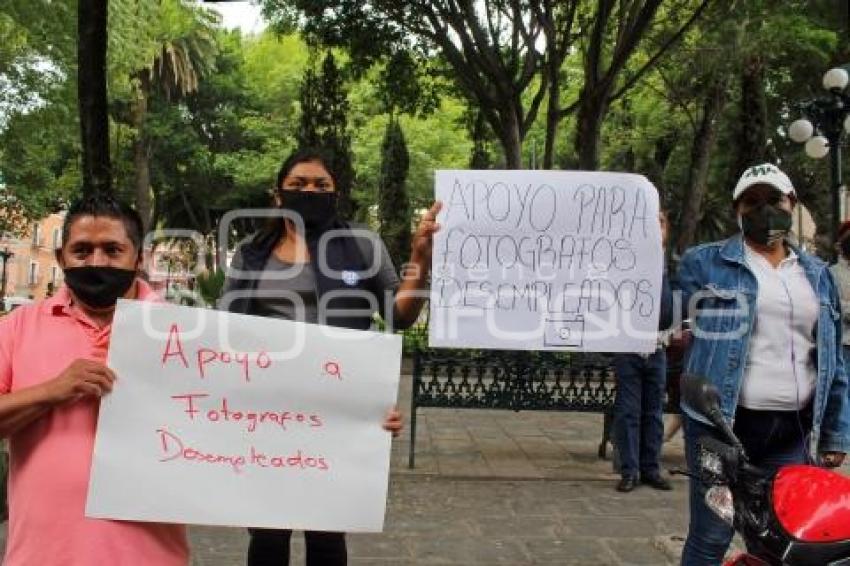 APOYO PARA
FOTOGRAFOS
DESEMPLEADOS
Apoyo a
Fotografos
Desempleados
agencia
enfoque